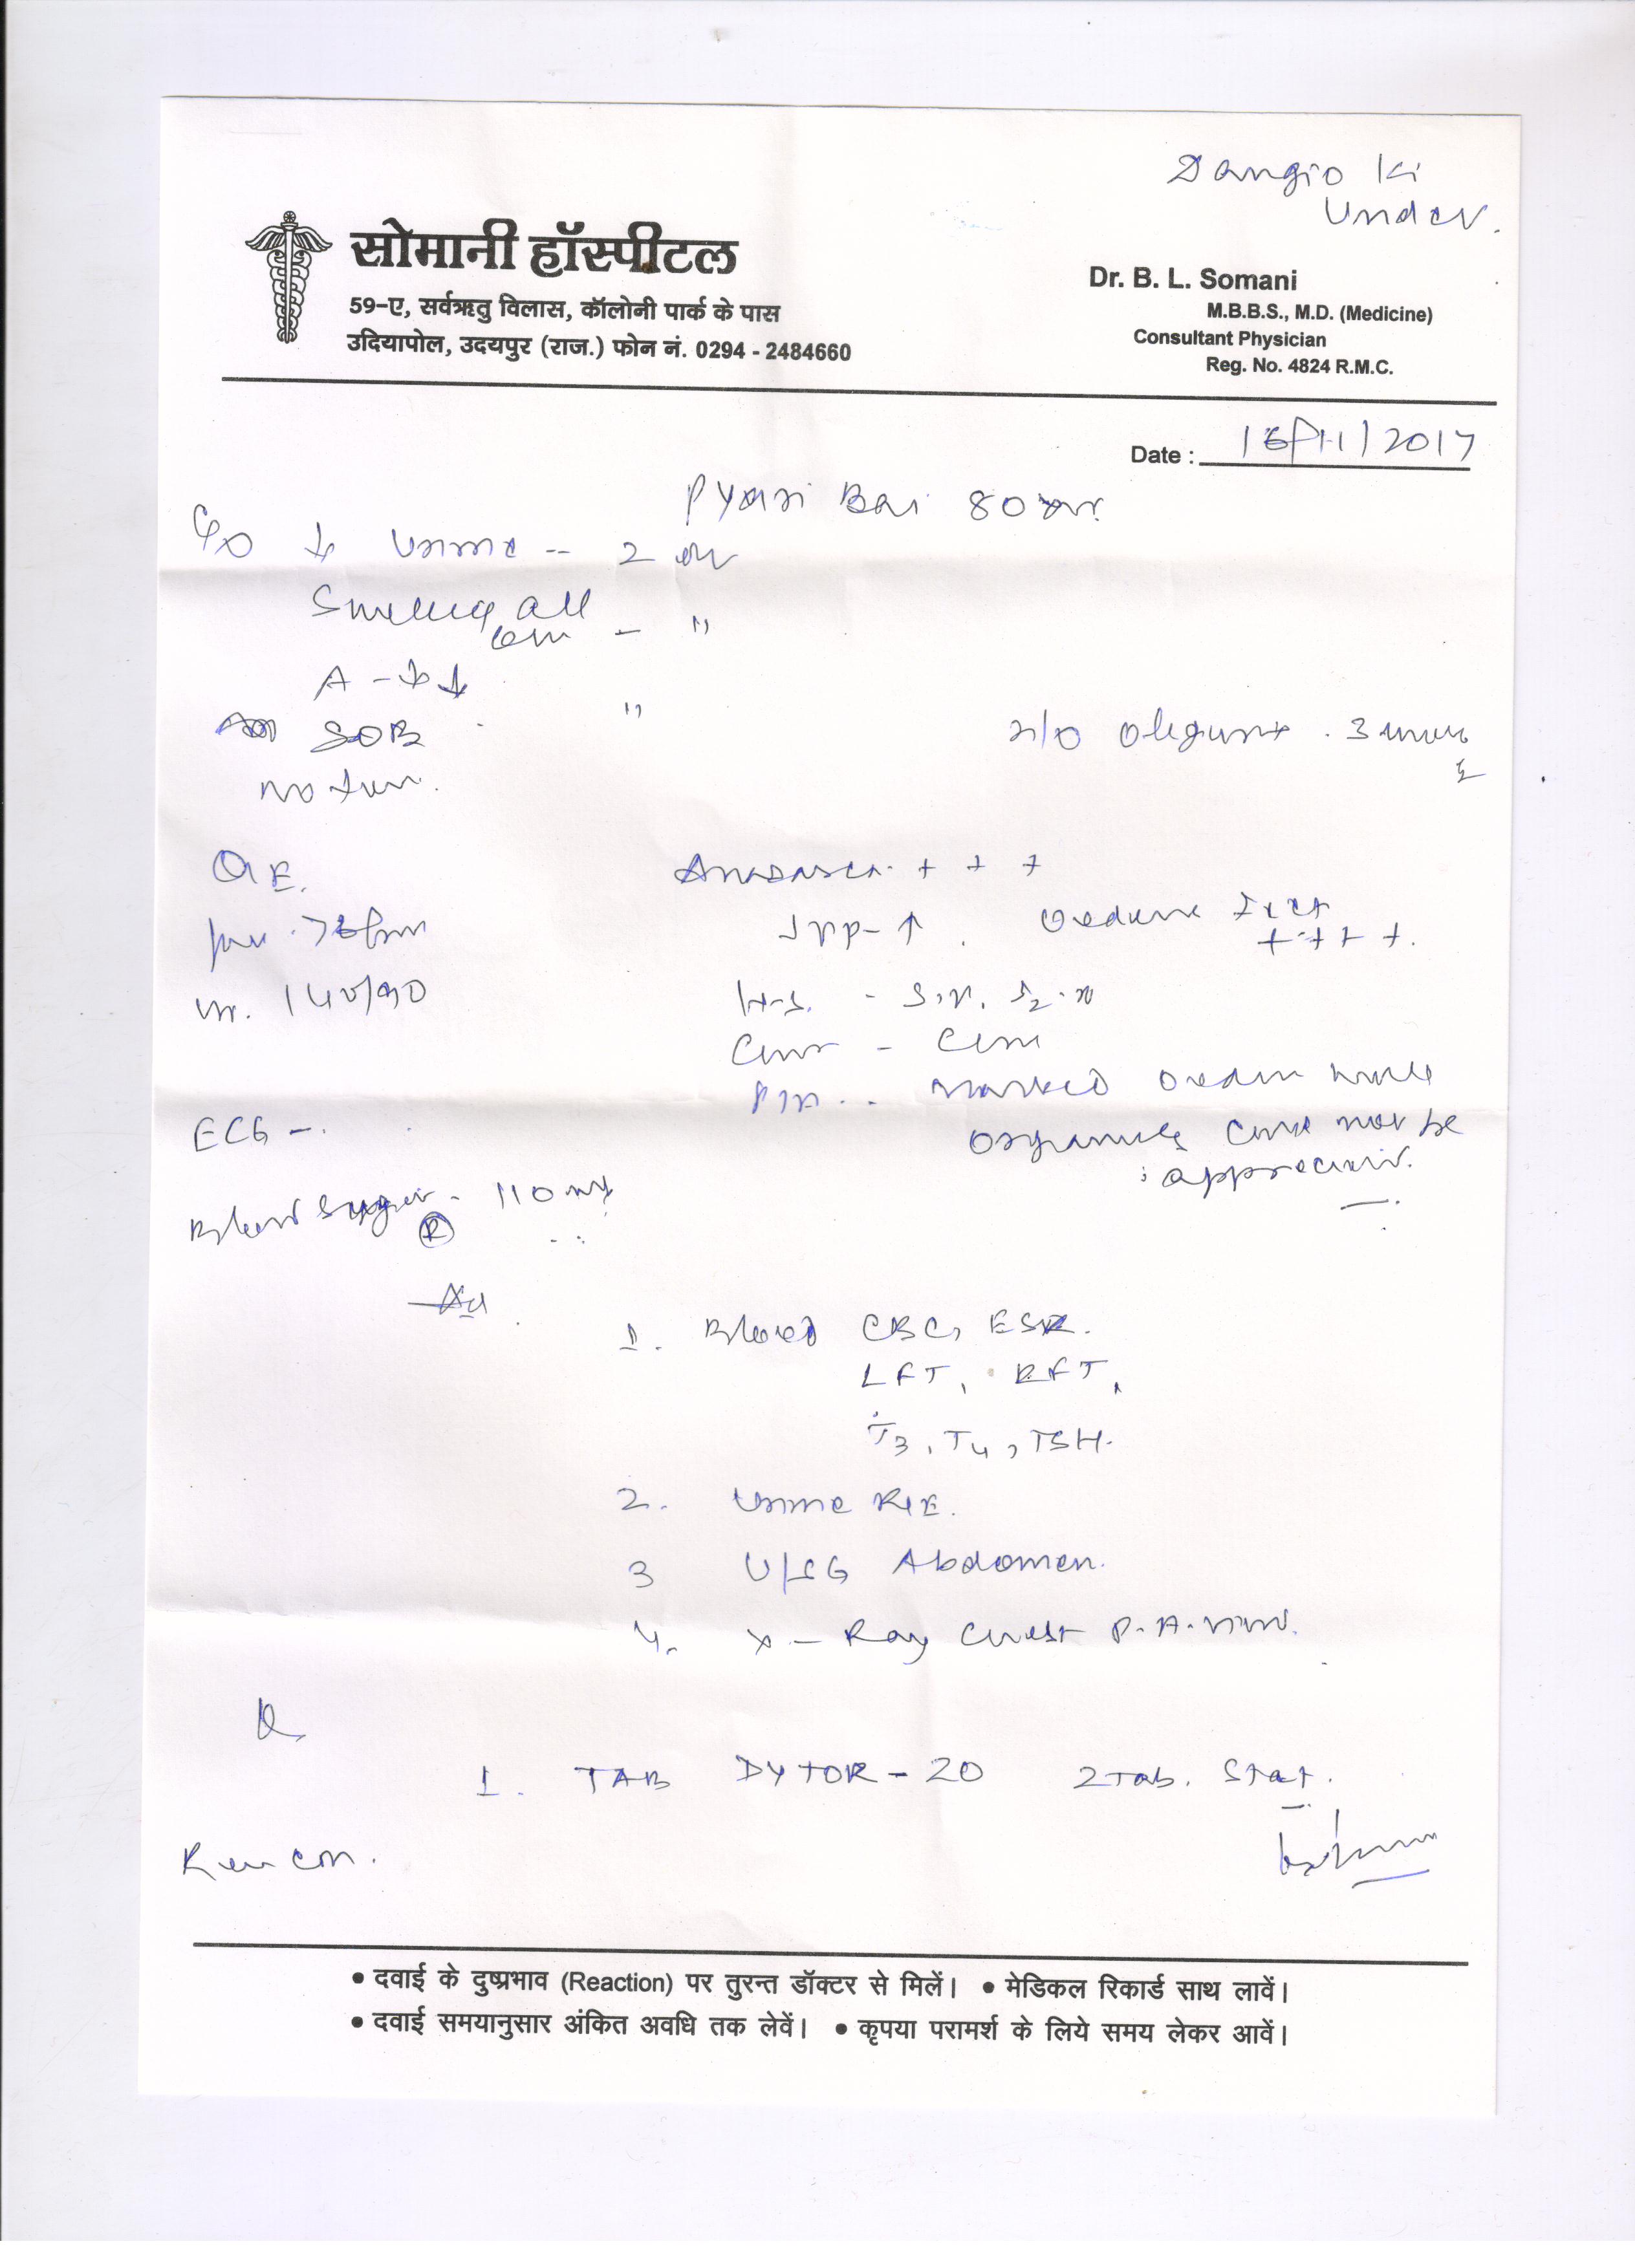 Dangio Ki
Undar.
सोमानी हॉस्पीटल
59-ए, सर्वऋतु विलास, कॉलोनी पार्क के पास
उदियापोल, उदयपुर (राज.) फोन नं. 0294 - 2484660
Dr. B. L. Somani
M.B.B.S., M.D. (Medicine)
Consultant Physician
Reg. No. 4824 R.M.C.
Date : 16/11/2017
Pyari Bai 80
C/O ↓ Urine -- 2
Swelling all
- "
A - ↓ ↓
SOB - "
No
H/O Oliguria . 3
O/E.
Anasarca + + +
JVP - ↑ . Oedema
+ + + +.
140/90
H.S. - S1 N. S2 N
Chest - Clear
P/A .. Marked Oedema
be
ECG -.
Blood Sugar - 110 mg
(R)
Ad
1. Blood CBC, ESR.
LFT, RFT,
T3, T4, TSH.
2. Urine R/E.
3 U/SG Abdomen.
4. X - Ray Chest P.A. View.
1. TAB DYTOR - 20 2 Tab. Stat.
• दवाई के दुष्प्रभाव (Reaction) पर तुरन्त डॉक्टर से मिलें। • मेडिकल रिकार्ड साथ लावें।
• दवाई समयानुसार अंकित अवधि तक लेवें। • कृपया परामर्श के लिये समय लेकर आवें।